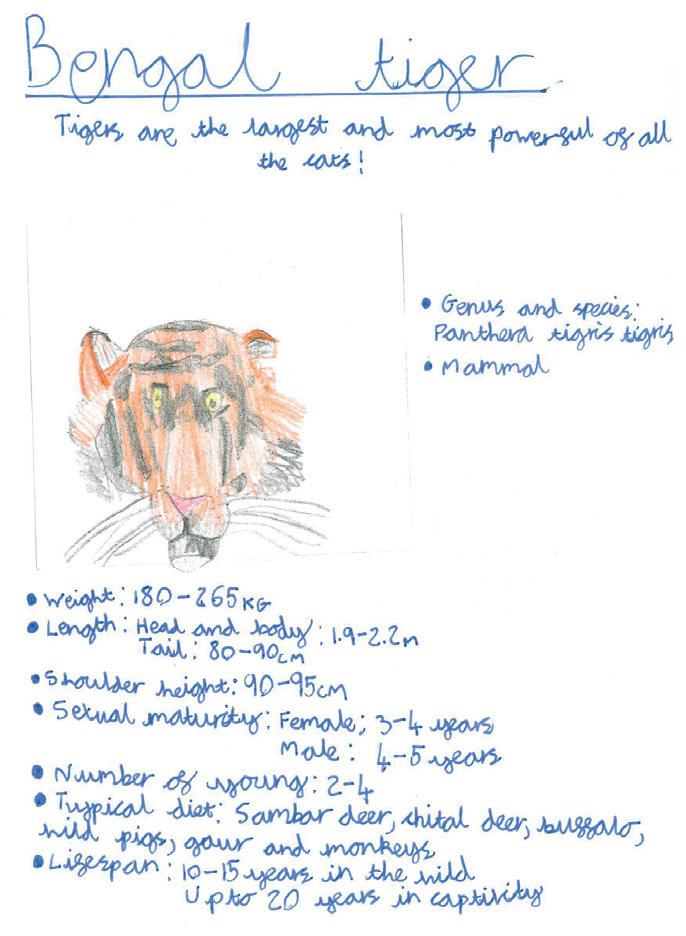 Bengal tiger
Tigers are the largest and most powerful of all
the cats!
• Genus and species:
Panthera tigris tigris
• Mammal
• Weight: 180-265KG
• Length: Head and body: 1.9-2.2m
Tail: 80-90cm
• Shoulder height: 90-95cm
• Sexual maturity: Female; 3-4 years
Male: 4-5 years
• Number of young: 2-4
• Typical diet: Sambar deer, chital deer, buffalo,
wild pigs, gaur and monkeys
• Lifespan: 10-15 years in the wild
Up to 20 years in captivity